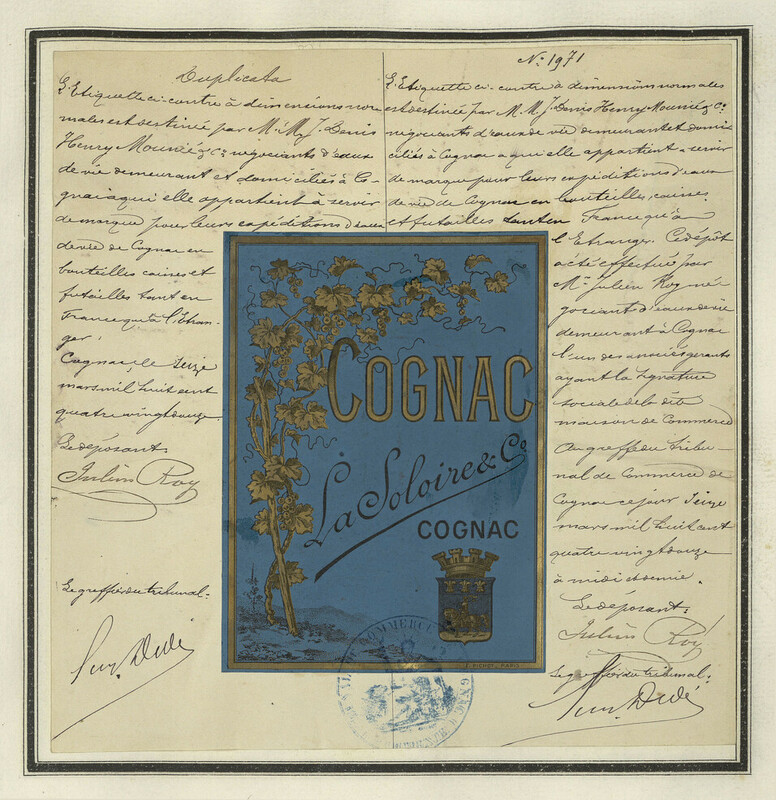 Duplicata
L'Etiquette ci-contre à dimensions nor
males est destinée par M. M. J. Denis
Henry Mounié & Co négociants d'eaux
de vie demeurant et domiciliés à Co
gnac à qui elle appartient à servir
de marque pour leurs expéditions d'eaux
de vie de Cognac en
bouteilles caisses et
futailles tant en
France qu'à l'Etran
ger.
Cognac, le Seize
mars mil huit cent
quatre vingt douze
Le déposant
Julien Roy
Le greffier du tribunal.
No 1971
L'Etiquette ci-contre à dimensions normales
est destinée par M. M. J. Denis Henry Mounié & Co
négociants d'eaux de vie demeurant et domi
ciliés à Cognac à qui elle appartient à servir
de marque pour leurs expéditions d'eaux
de vie de Cognac en bouteilles, caisses
et futailles tant en France qu'à
l'Etranger. Ce dépôt
a été effectué par
Mr Julien Roy né
gociant d'eaux de vie
demeurant à Cognac
l'un des associés gérants
ayant la signature
sociale de la dite
maison de Commerce
Au greffe du tribu
nal de Commerce de
Cognac ce jour Seize
mars mil huit cent
quatre vingt douze
à midi et demie.
Le déposant.
Julien Roy
Le greffier du tribunal.
COGNAC
La Soloire & Co
COGNAC
PICHOT, PARIS
COMMERCE